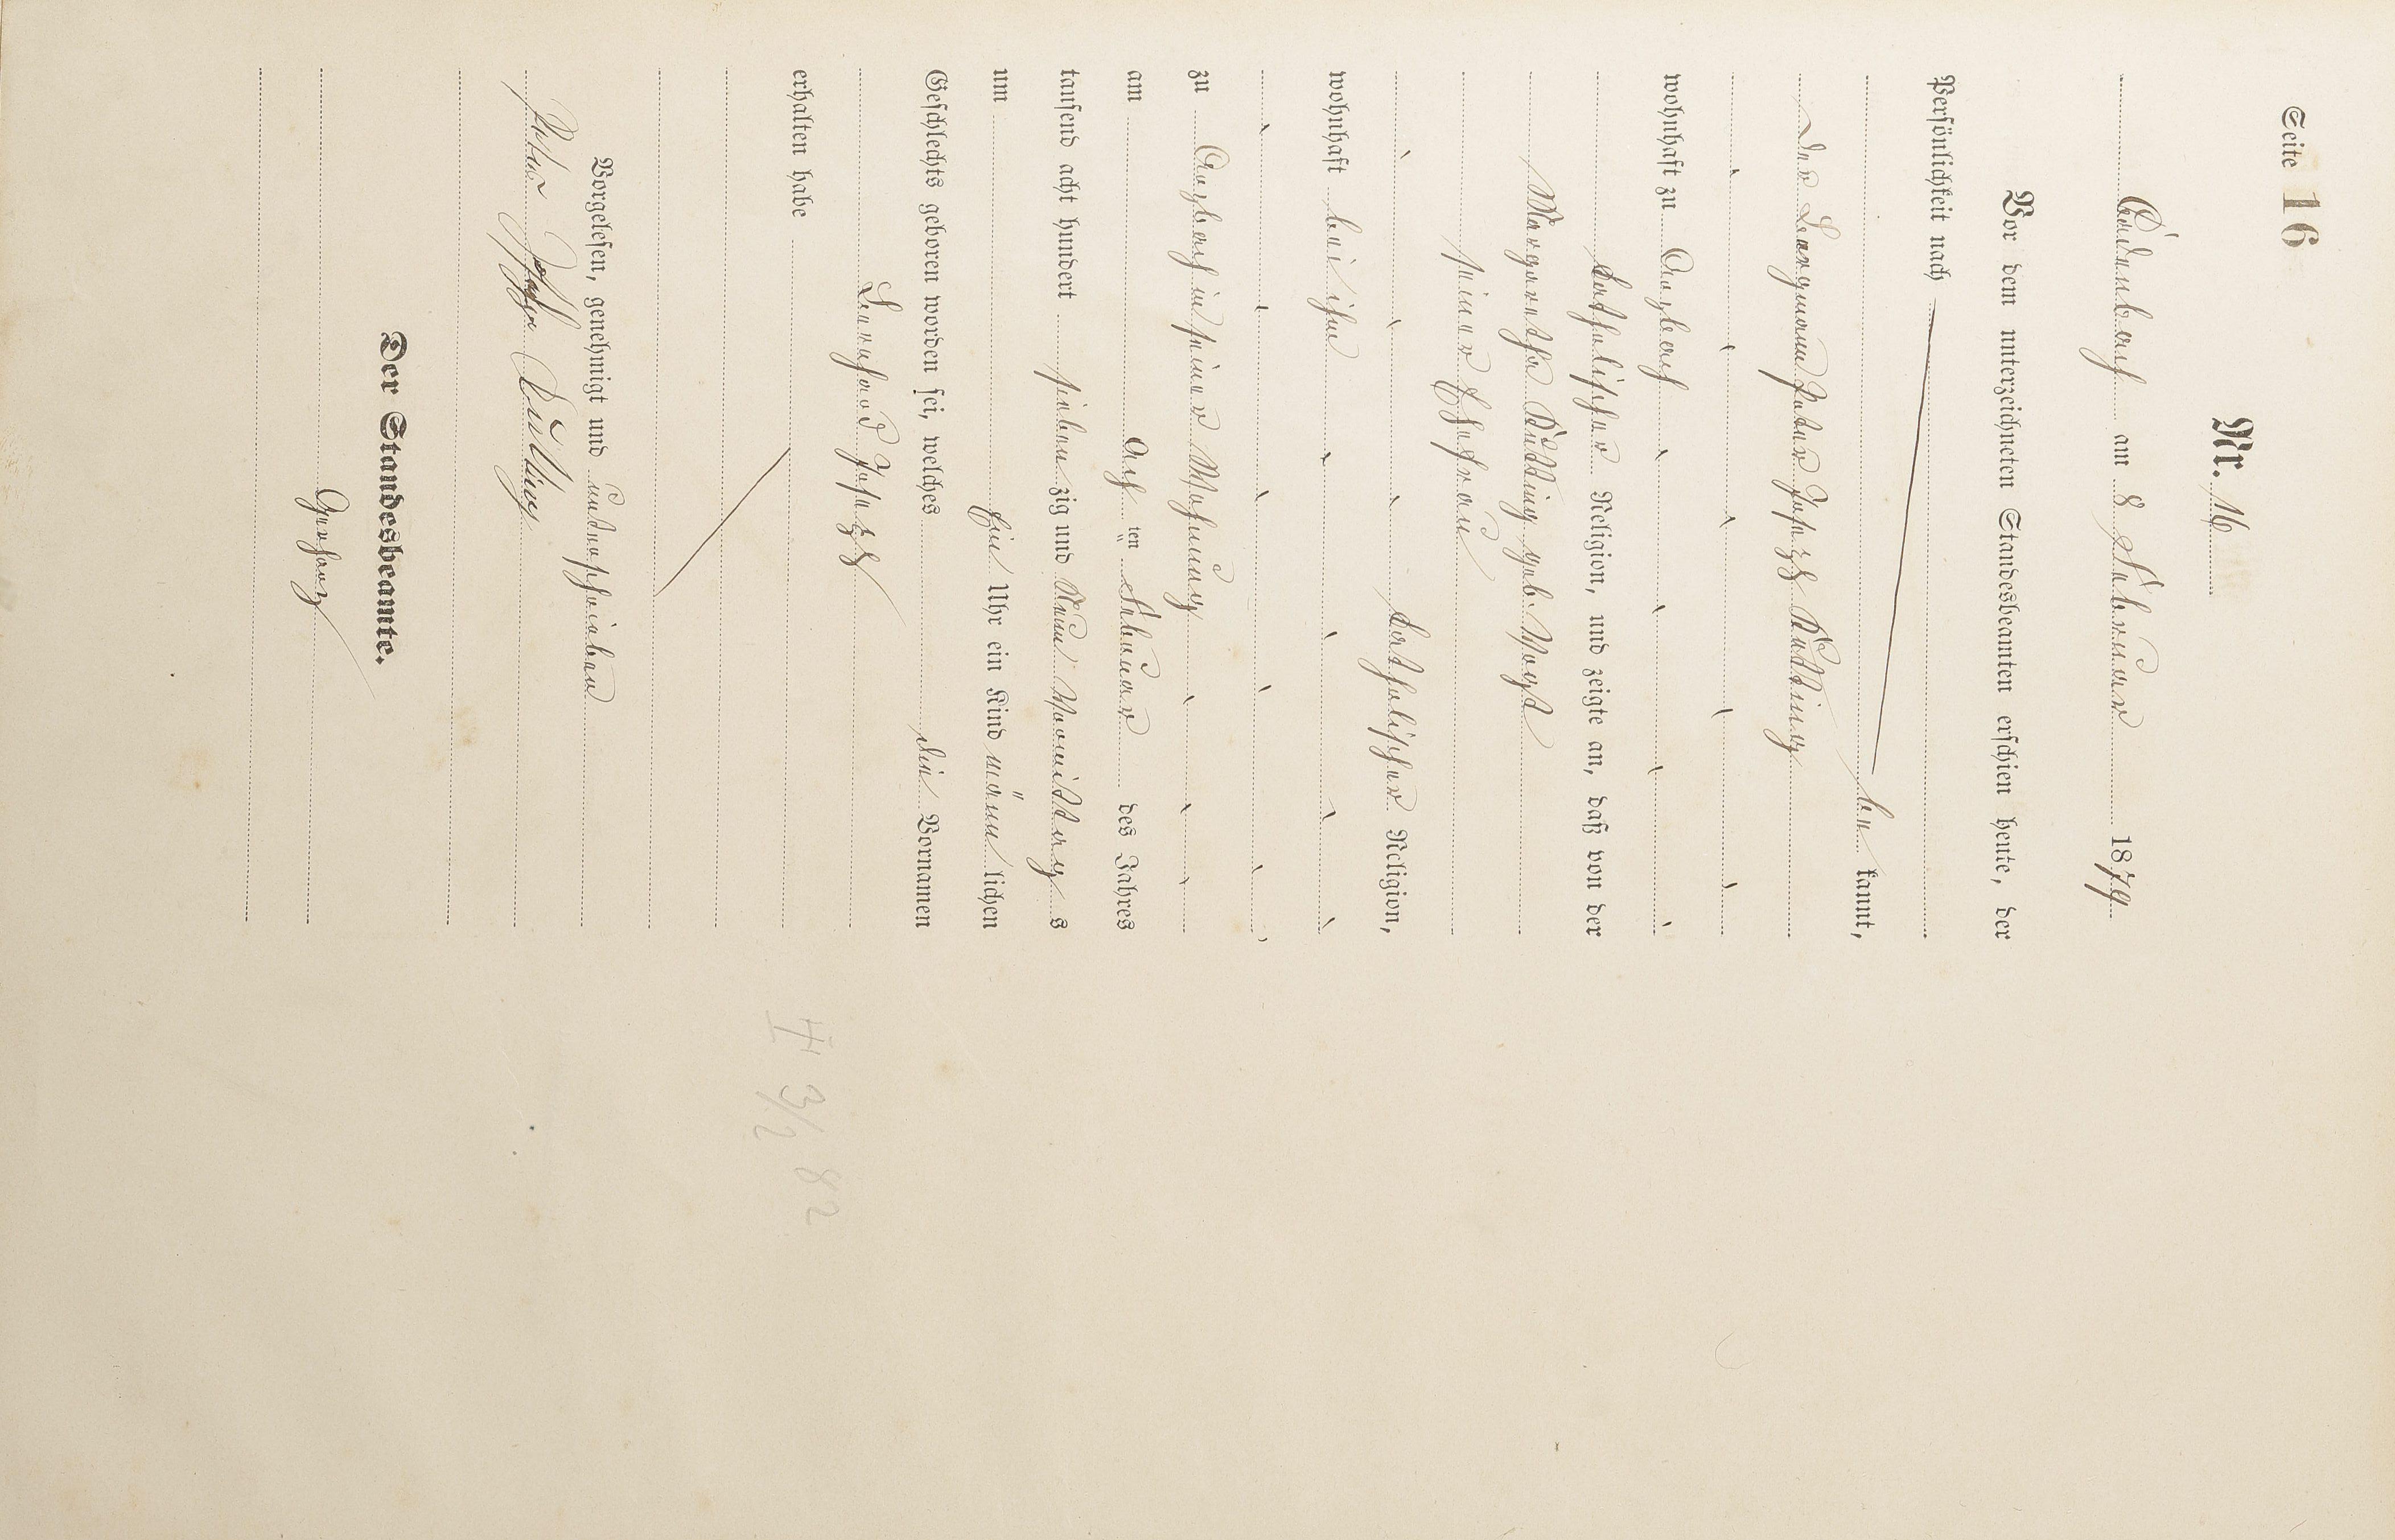 Seite 16
Nr. 16
Cadenbach am 8 Februar 1879
Vor dem unterzeichneten Standesbeamten erschien heute, der
Persönlichkeit nach
be kannt,
der Bergmann Peter Joseph Külling
wohnhaft zu Arzbach
katholischer Religion, und zeigte an, daß von der
Margaretha Külling geb. Vogt
seiner Ehefrau
katholischer Religion,
wohnhaft bei ihm
zu Arzbach in seiner Wohnung
am Ach ten Februar des Jahres
tausend acht hundert sieben zig und Neun Vormittag s
um Ein Uhr ein Kind männ lichen
Geschlechts geboren worden sei, welches die Vornamen
Bernhard Joseph
erhalten habe
Vorgelesen, genehmigt und unterschrieben
Peter Joseph Külling
Der Standesbeamte.
Gerharz
3/2 82